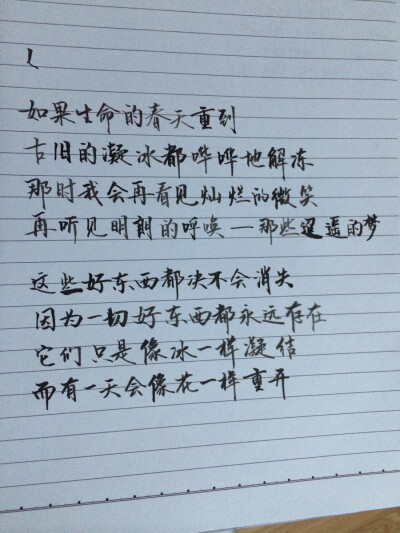 如果生命的春天重到
古旧的凝冰都哗哗地解冻
那时我会再看见灿烂的微笑
再听见明朗的呼唤—那些迢遥的梦
这些好东西都决不会消失
因为一切好东西都永远存在
它们只是像冰一样凝结
而有一天会像花一样重开